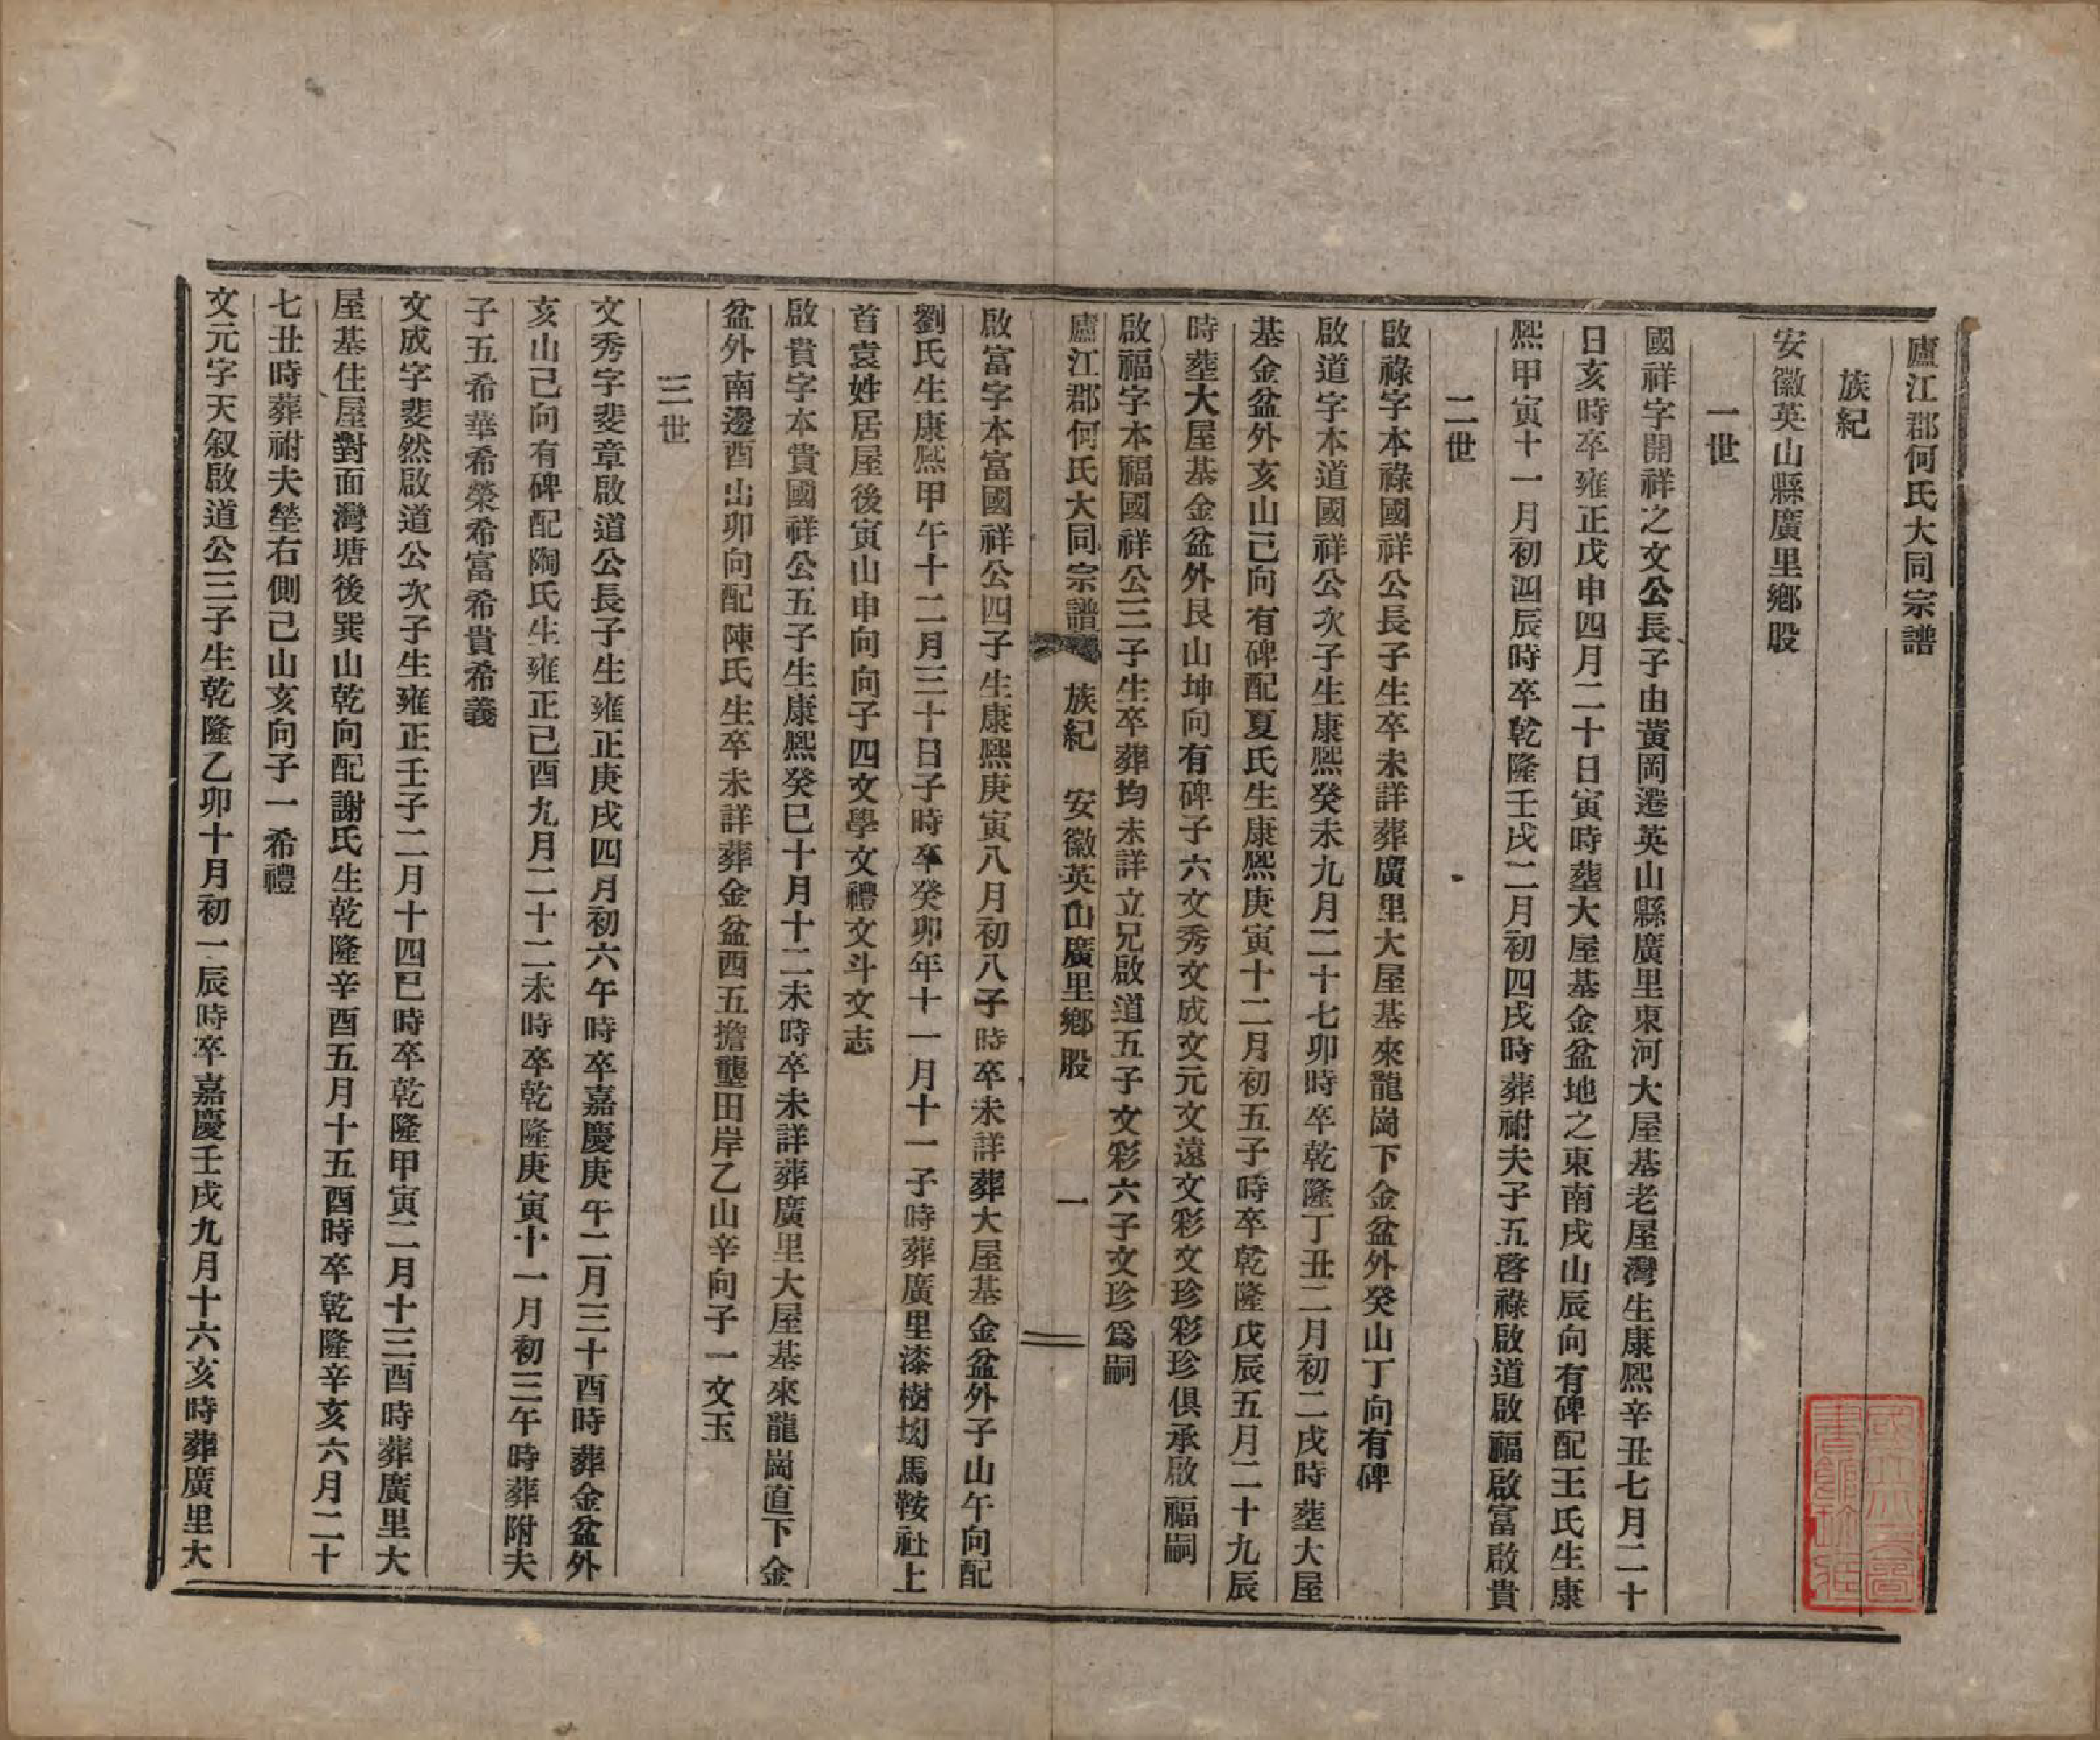 廬江郡何氏大同宗譜
族紀
安徽英山縣廣里鄉股
一世
國祥字開祥之文公長子由黃岡遷英山縣廣里東河大屋基老屋灣生康熙辛丑七月二十
日亥時卒雍正戊申四月二十日寅時塟大屋基金盆地之東南戌山辰向有碑配王氏生康
熙甲寅十一月初四辰時卒乾隆壬戌二月初四戌時葬祔夫子五啓祿啟道啟福啟富啟貴
二世
啟祿字本祿國祥公長子生卒未詳葬廣里大屋基來龍崗下金盆外癸山丁向有碑
啟道字本道國祥公次子生康熙癸未九月二十七卯時卒乾隆丁丑二月初二戌時塟大屋
基金盆外亥山己向有碑配夏氏生康熙庚寅十二月初五子時卒乾隆戊辰五月二十九辰
時塟大屋基金盆外艮山坤向有碑子六文秀文成文元文遠文彩文珍彩珍俱承啟福嗣
啟福字本福國祥公三子生卒葬均未詳立兄啟道五子文彩六子文珍爲嗣
廬江郡何氏大同宗譜 族紀 安徽英山廣里鄉股 一
啟富字本富國祥公四子生康熙庚寅八月初八子時卒未詳葬大屋基金盆外子山午向配
劉氏生康熙甲午十二月三十日子時卒癸卯年十一月十一子時葬廣里漆樹㘭馬鞍社上
首袁姓居屋後寅山申向向子四文學文禮文斗文志
啟貴字本貴國祥公五子生康熙癸巳十月十二未時卒未詳葬廣里大屋基來龍崗直下金
盆外南邊酉山卯向配陳氏生卒未詳葬金盆西五擔壟田岸乙山辛向子一文玉
三世
文秀字斐章啟道公長子生雍正庚戌四月初六午時卒嘉慶庚午二月三十酉時葬金盆外
亥山己向有碑配陶氏生雍正己酉九月二十二未時卒乾隆庚寅十一月初三午時葬附夫
子五希華希榮希富希貴希義
文成字斐然啟道公次子生雍正壬子二月十四巳時卒乾隆甲寅二月十三酉時葬廣里大
屋基住屋對面灣塘後巽山乾向配謝氏生乾隆辛酉五月十五酉時卒乾隆辛亥六月二十
七丑時葬祔夫塋右側己山亥向子一希禮
文元字天叙啟道公三子生乾隆乙卯十月初一辰時卒嘉慶壬戌九月十六亥時葬廣里大